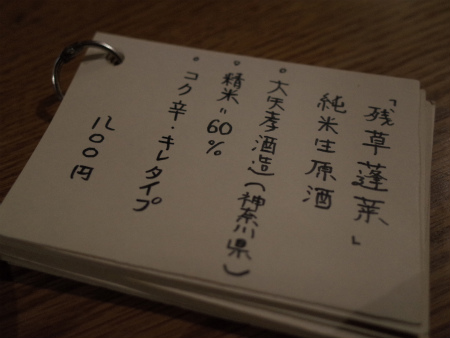 「残草蓬莱」
純米生原酒
。大矢孝酒造(神奈川県)
。精米=60%
。コク辛・キレタイプ
800円